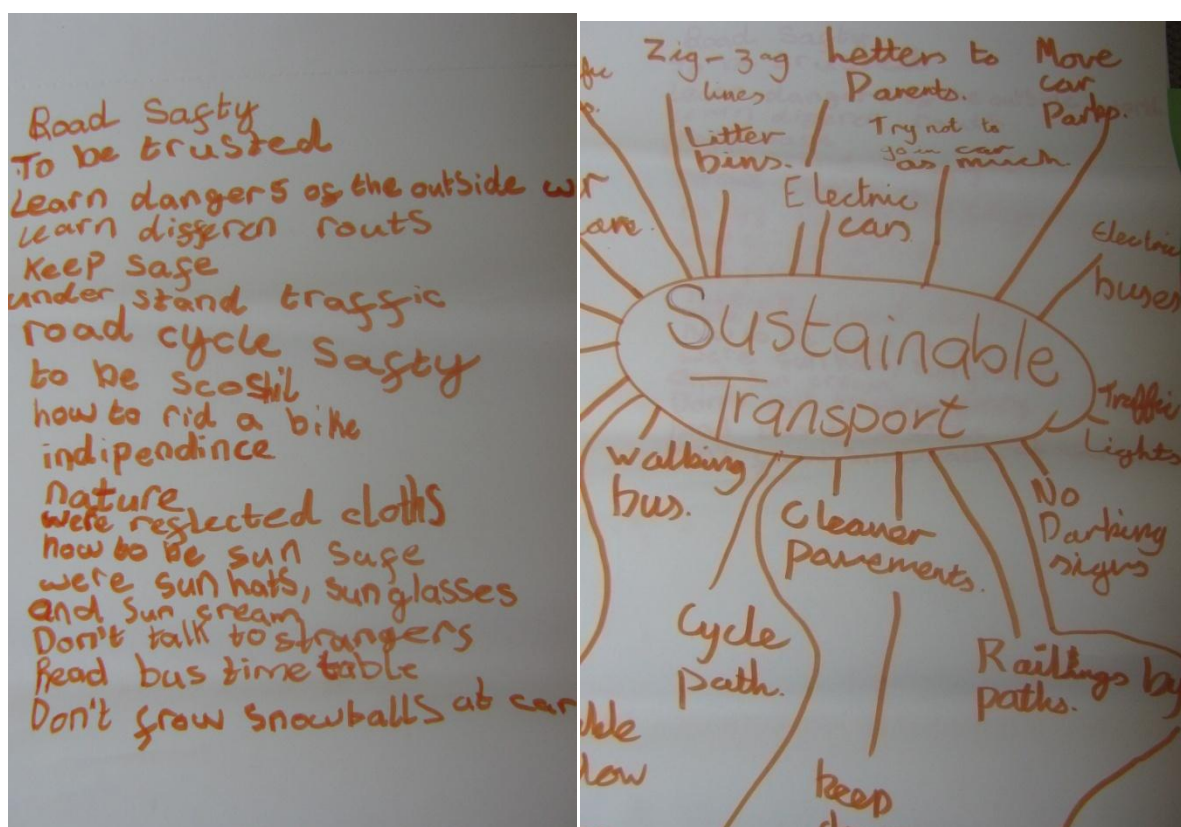 Road Safty
To be trusted
Learn dangers of the outside
Learn differen routs
Keep safe
under stand traffic
road cycle Safty
to be
how to rid a bike
indipendince
nature
were reflected cloths
how to be sun safe
were sun hats, sunglasses
and sun cream
Don't talk to strangers
Read bus time table
Don't frow snowballs at car
Zig-zag
lines
Letters to
Parents.
Move
car
Parks.
Litter
bins.
Try not to
go in car
as much.
Electric
cars
Electric
buses
Sustainable
Transport
Traffic
Lights
Walking
bus.
Cleaner
pavements.
No
Parking
signs
Cycle
path.
Railings by
paths.
keep